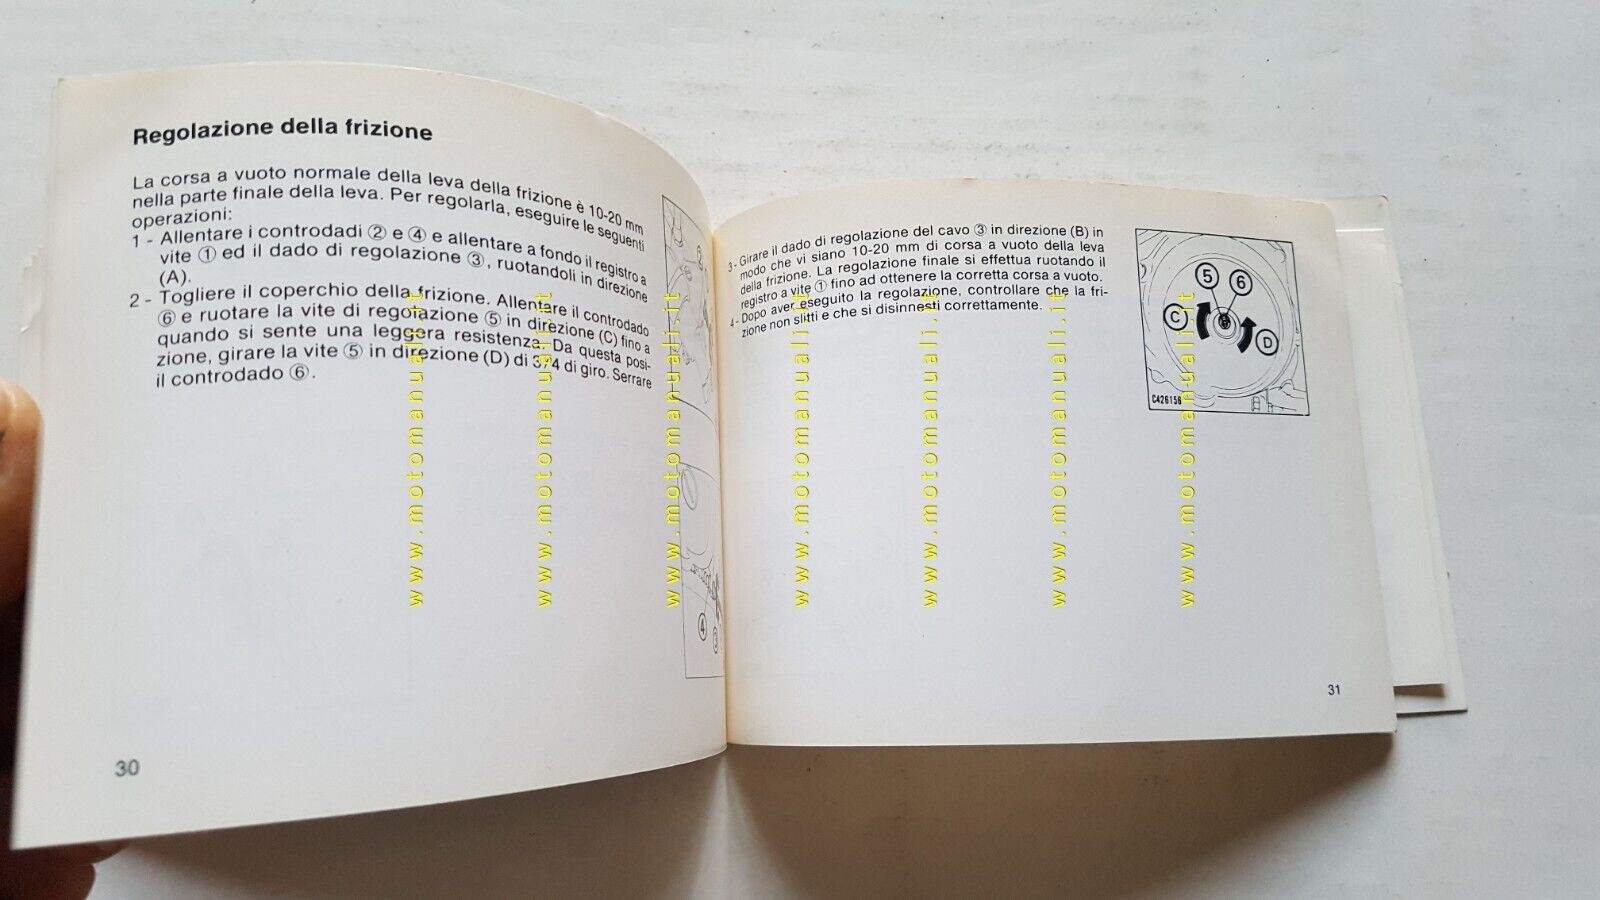 Regolazione della frizione
La corsa a vuoto normale della leva della frizione è 10-20 mm
nella parte finale della leva. Per regolarla, eseguire le seguenti
operazioni:
1 - Allentare i controdadi ② e ④ e allentare a fondo il registro a
vite ① ed il dado di regolazione ③, ruotandoli in direzione
(A).
2 - Togliere il coperchio della frizione. Allentare il controdado
⑥ e ruotare la vite di regolazione ⑤ in direzione (C) fino a
quando si sente una leggera resistenza. Da questa posi-
zione, girare la vite ⑤ in direzione (D) di 3/4 di giro. Serrare
il controdado ⑥.
30
②
④
③
3 - Girare il dado di regolazione del cavo ③ in direzione (B) in
modo che vi siano 10-20 mm di corsa a vuoto della leva
della frizione. La regolazione finale si effettua ruotando il
registro a vite ① fino ad ottenere la corretta corsa a vuoto.
4 - Dopo aver eseguito la regolazione, controllare che la fri-
zione non slitti e che si disinnesti correttamente.
⑤ ⑥
Ⓒ Ⓓ
C426156
31
www.motomanuali.it
www.motomanuali.it
www.motomanuali.it
www.motomanuali.it
www.motomanuali.it
www.motomanuali.it
www.motomanuali.it